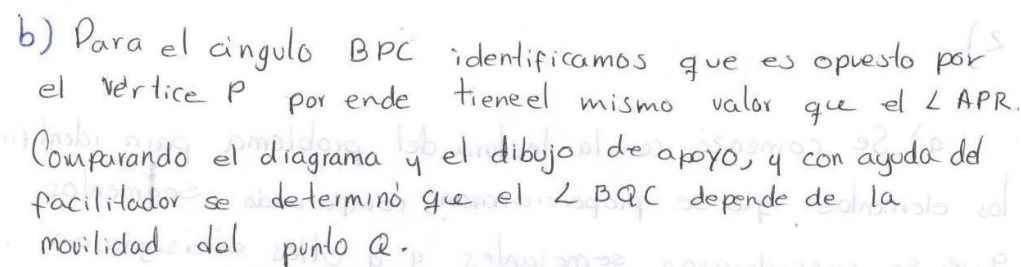 b) Para el ángulo BPC identificamos que es opuesto por
el vértice P por ende tiene el mismo valor que el ∠ APR.
Comparando el diagrama y el dibujo de apoyo, y con ayuda del
facilitador se determinó que el ∠ BQC depende de la
movilidad del punto Q.